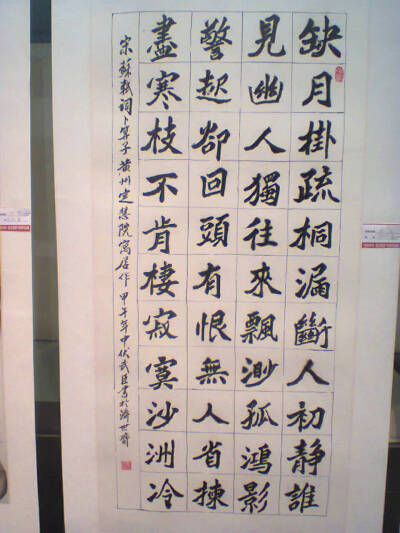 缺月掛疏桐漏斷人初靜誰
見幽人獨往來飄渺孤鴻影
警起卻回頭有恨無人省揀
盡寒枝不肯棲寂寞沙洲冷
宋蘇軾词卜算子黄州定慧院寓居作 甲午年中伏武臣書於濟世齋